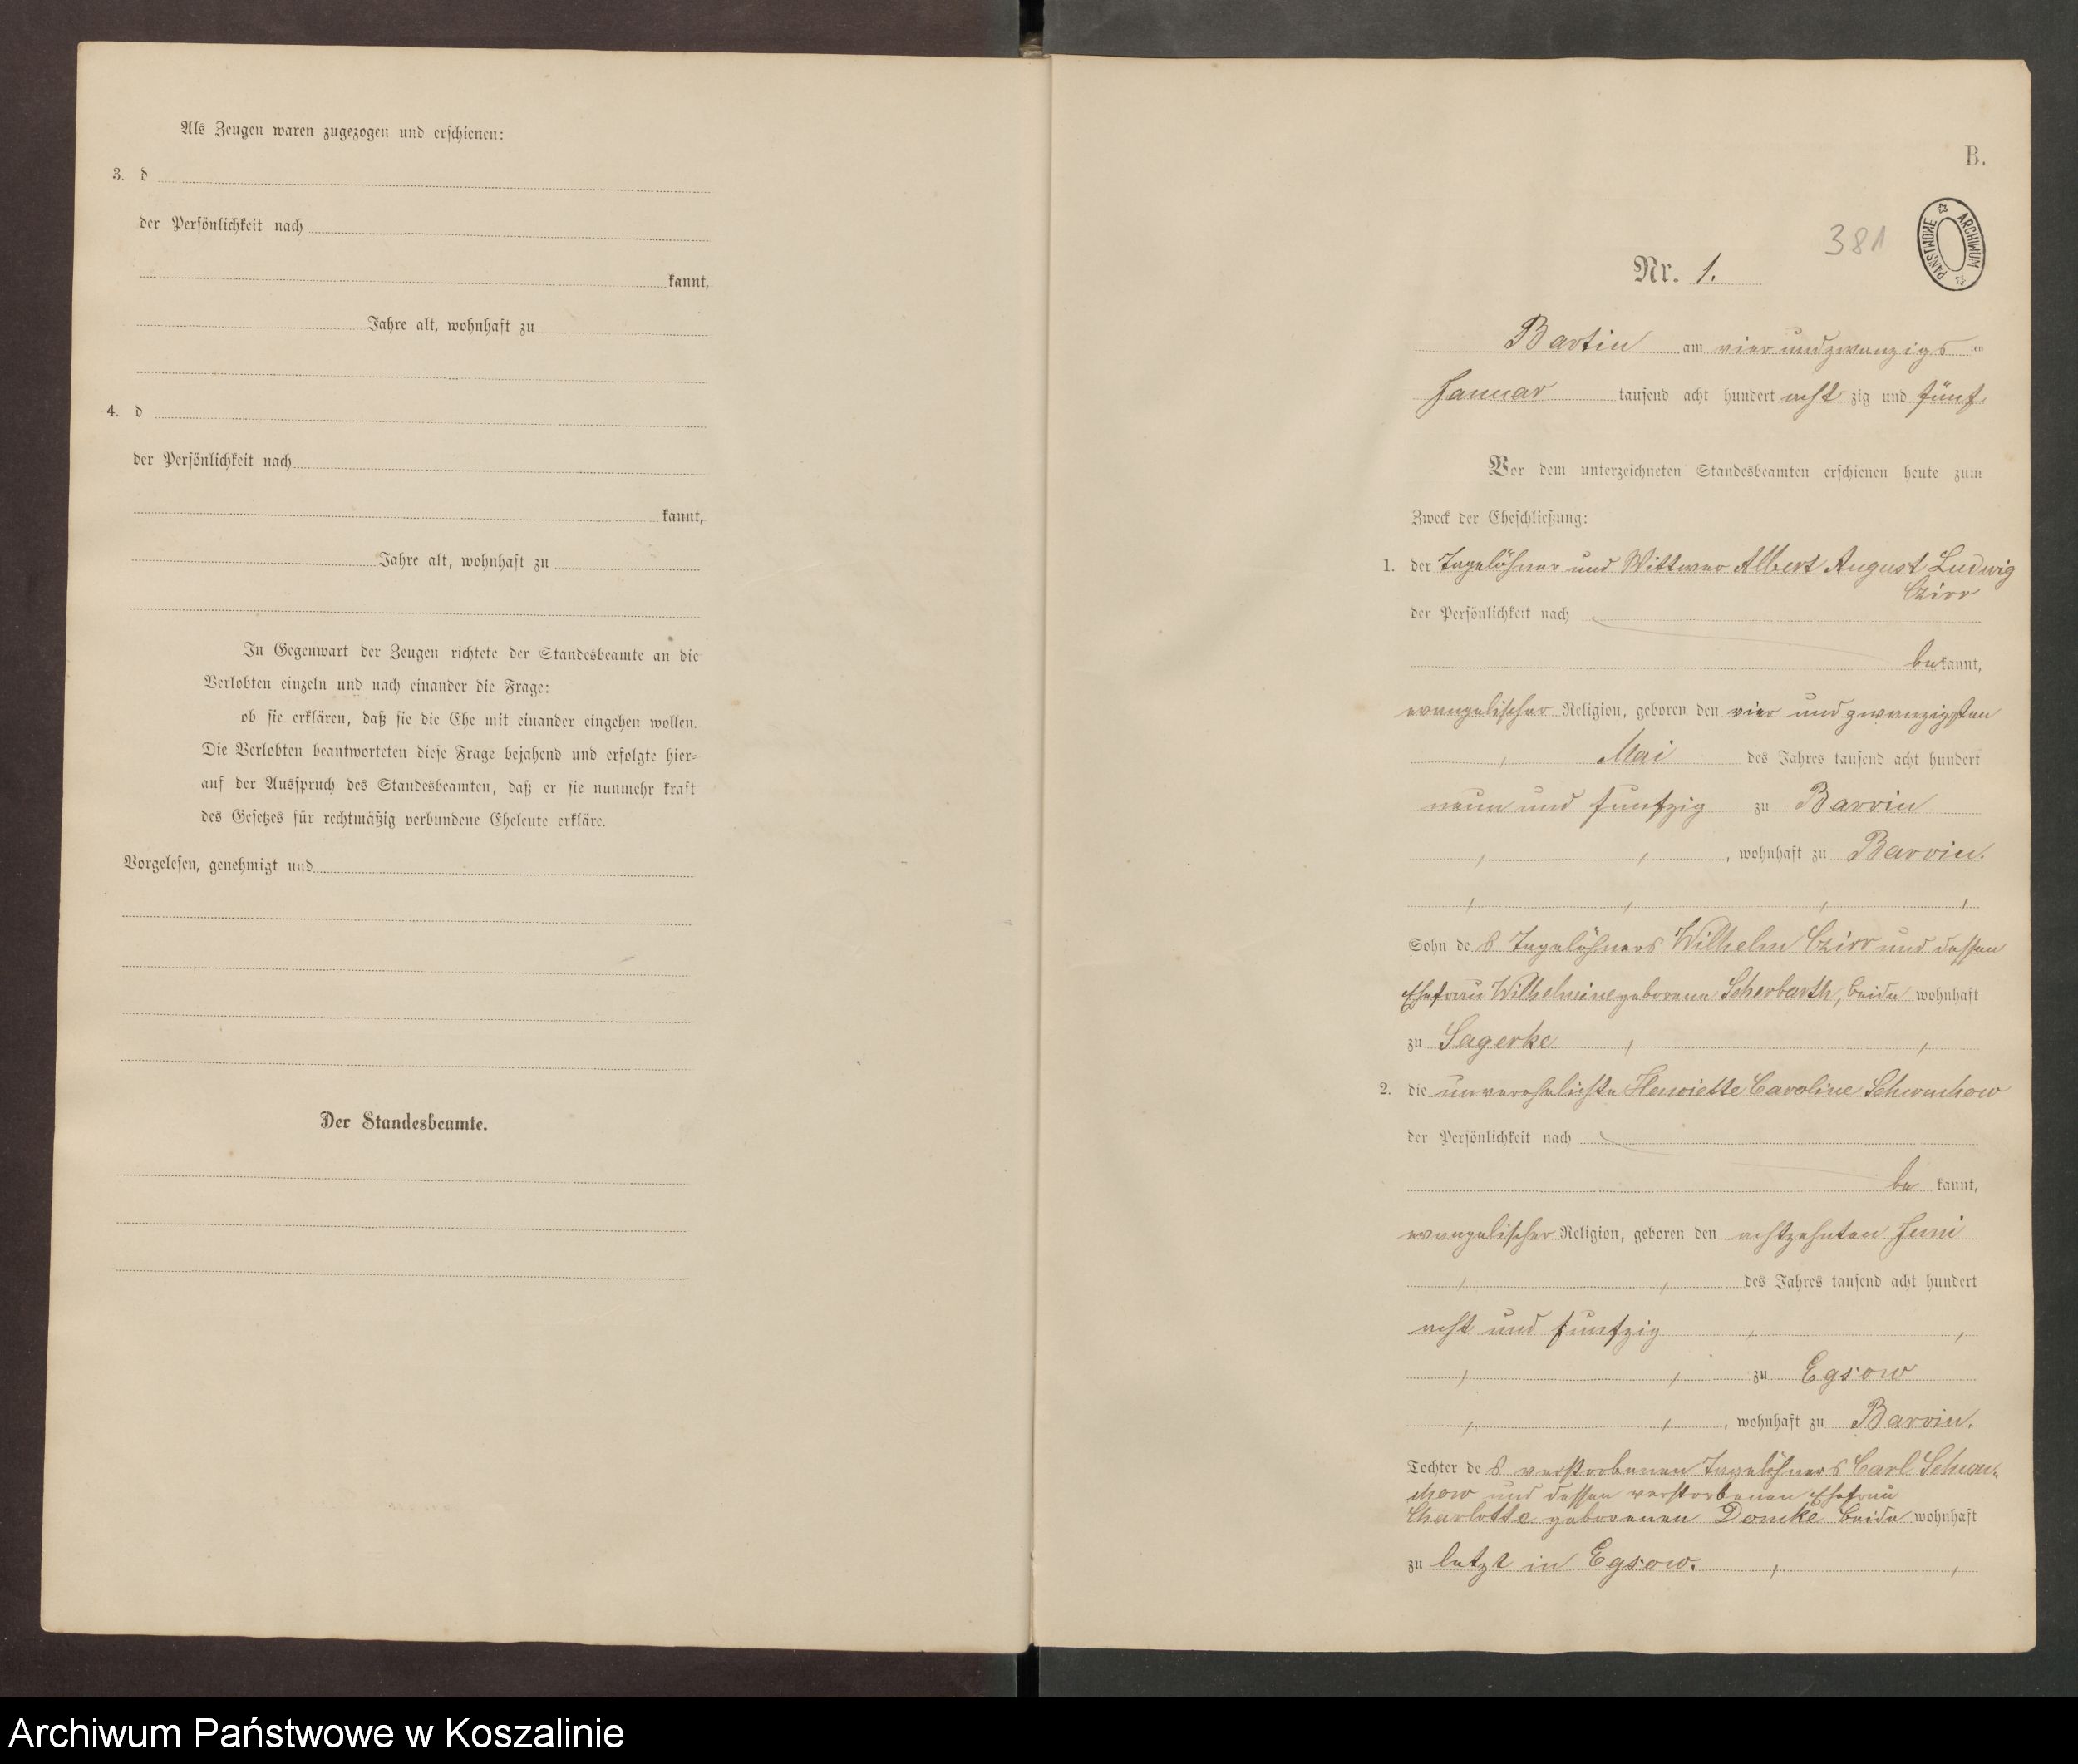 Als Zeugen waren zugezogen und erschienen:
3. d
der Persönlichkeit nach
kannt,
Jahre alt, wohnhaft zu
4. d
der Persönlichkeit nach
kannt,
Jahre alt, wohnhaft zu
In Gegenwart der Zeugen richtete der Standesbeamte an die
Verlobten einzeln und nach einander die Frage:
ob sie erklären, daß sie die Ehe mit einander eingehen wollen.
Die Verlobten beantworteten diese Frage bejahend und erfolgte hier-
auf der Ausspruch des Standesbeamten, daß er sie nunmehr kraft
des Gesetzes für rechtmäßig verbundene Eheleute erkläre.
Vorgelesen, genehmigt und
Der Standesbeamte.
B.
381
ARCHIWUM PAŃSTWOWE
Nr. 1.
Bartin am vier und zwanzigs ten
Januar tausend acht hundert acht zig und fünf
Vor dem unterzeichneten Standesbeamten erschienen heute zum
Zweck der Eheschließung:
1. der Tagelöhner und Wittwer Albert August Ludwig
Czirr
der Persönlichkeit nach
bekannt,
evangelischer Religion, geboren den vier und zwanzigsten
Mai des Jahres tausend acht hundert
neun und funfzig zu Barvin
, wohnhaft zu Barvin.
Sohn des Tagelöhners Wilhelm Czirr und dessen
Ehefrau Wilhelmine geborene Scherbarth, beide wohnhaft
zu Sagerke
2. die unverehelichte Henriette Caroline Schwuchow
der Persönlichkeit nach
be kannt,
evangelischer Religion, geboren den achtzehnten Juni
des Jahres tausend acht hundert
acht und funfzig
zu Egsow
, wohnhaft zu Barvin.
Tochter des verstorbenen Tagelöhners Carl Schwu-
chow und dessen verstorbenen Ehefrau
Charlotte geborenen Domke beide wohnhaft
zu letzt in Egsow.
Archiwum Państwowe w Koszalinie